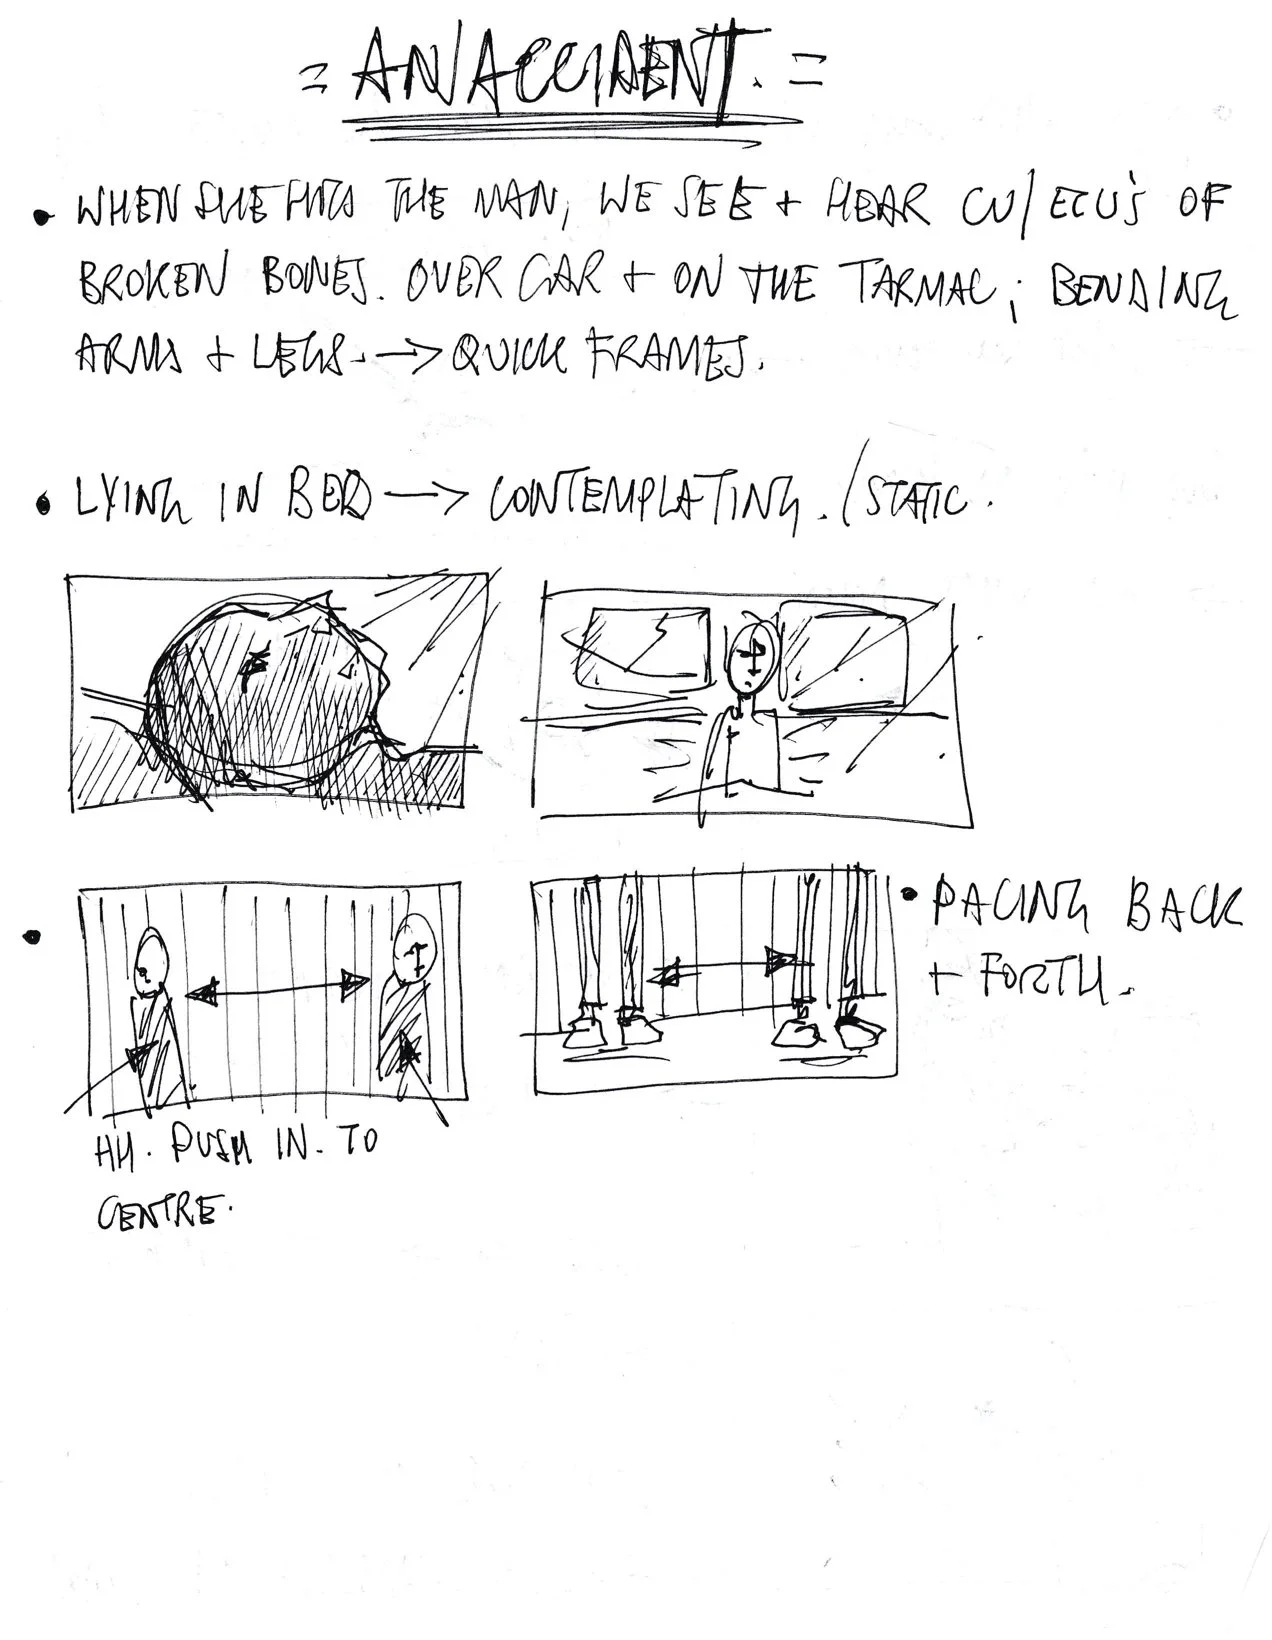 = AN ACCIDENT. =
• WHEN SHE HITS THE MAN, WE SEE + HEAR CU/ECU'S OF
BROKEN BONES. OVER CAR + ON THE TARMAC; BENDING
ARMS + LEGS. → QUICK FRAMES.
• LYING IN BED → CONTEMPLATING. / STATIC.
• PACING BACK
+ FORTH.
HH. PUSH IN. TO
CENTRE.